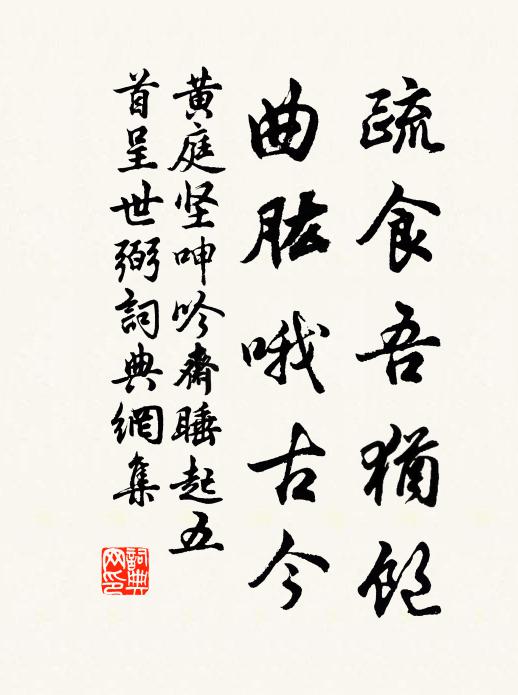 疏食吾犹飽
曲肱哦古今
黄庭坚呻吟齋睡起五
首呈世弼詞典網集
詞典网印